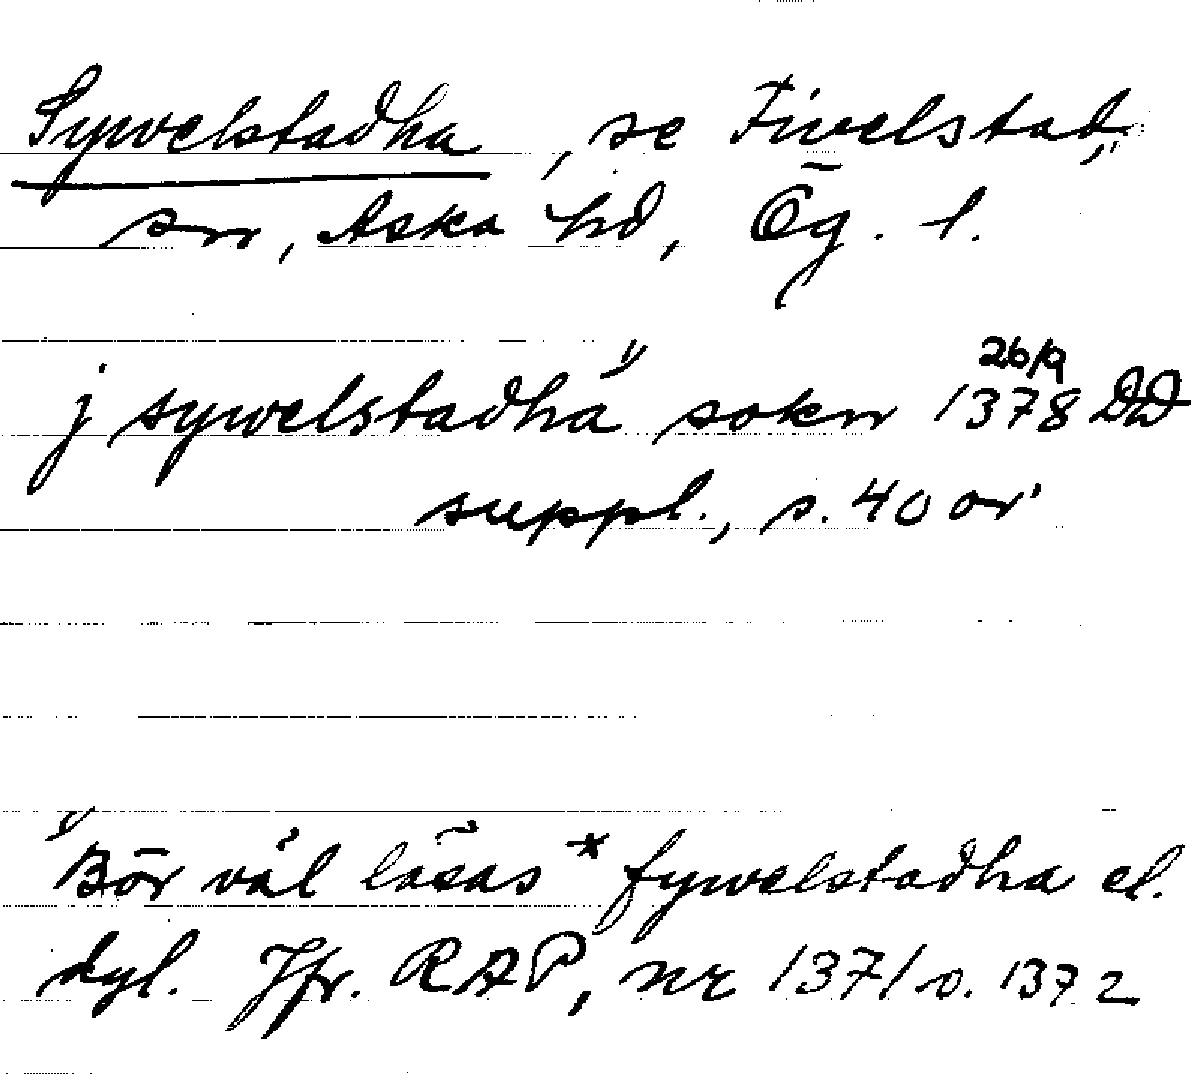 Sywelstadha, se Fivelstad,
sn, Aska hd, Ög. l.
j sywelstadha 1) sokn 26/9 1378 DD
suppl., s. 40 or
1) Bör väl läsas * fywelstadha el.
dyl. Jfr. RAP, nr 1371 o. 1372